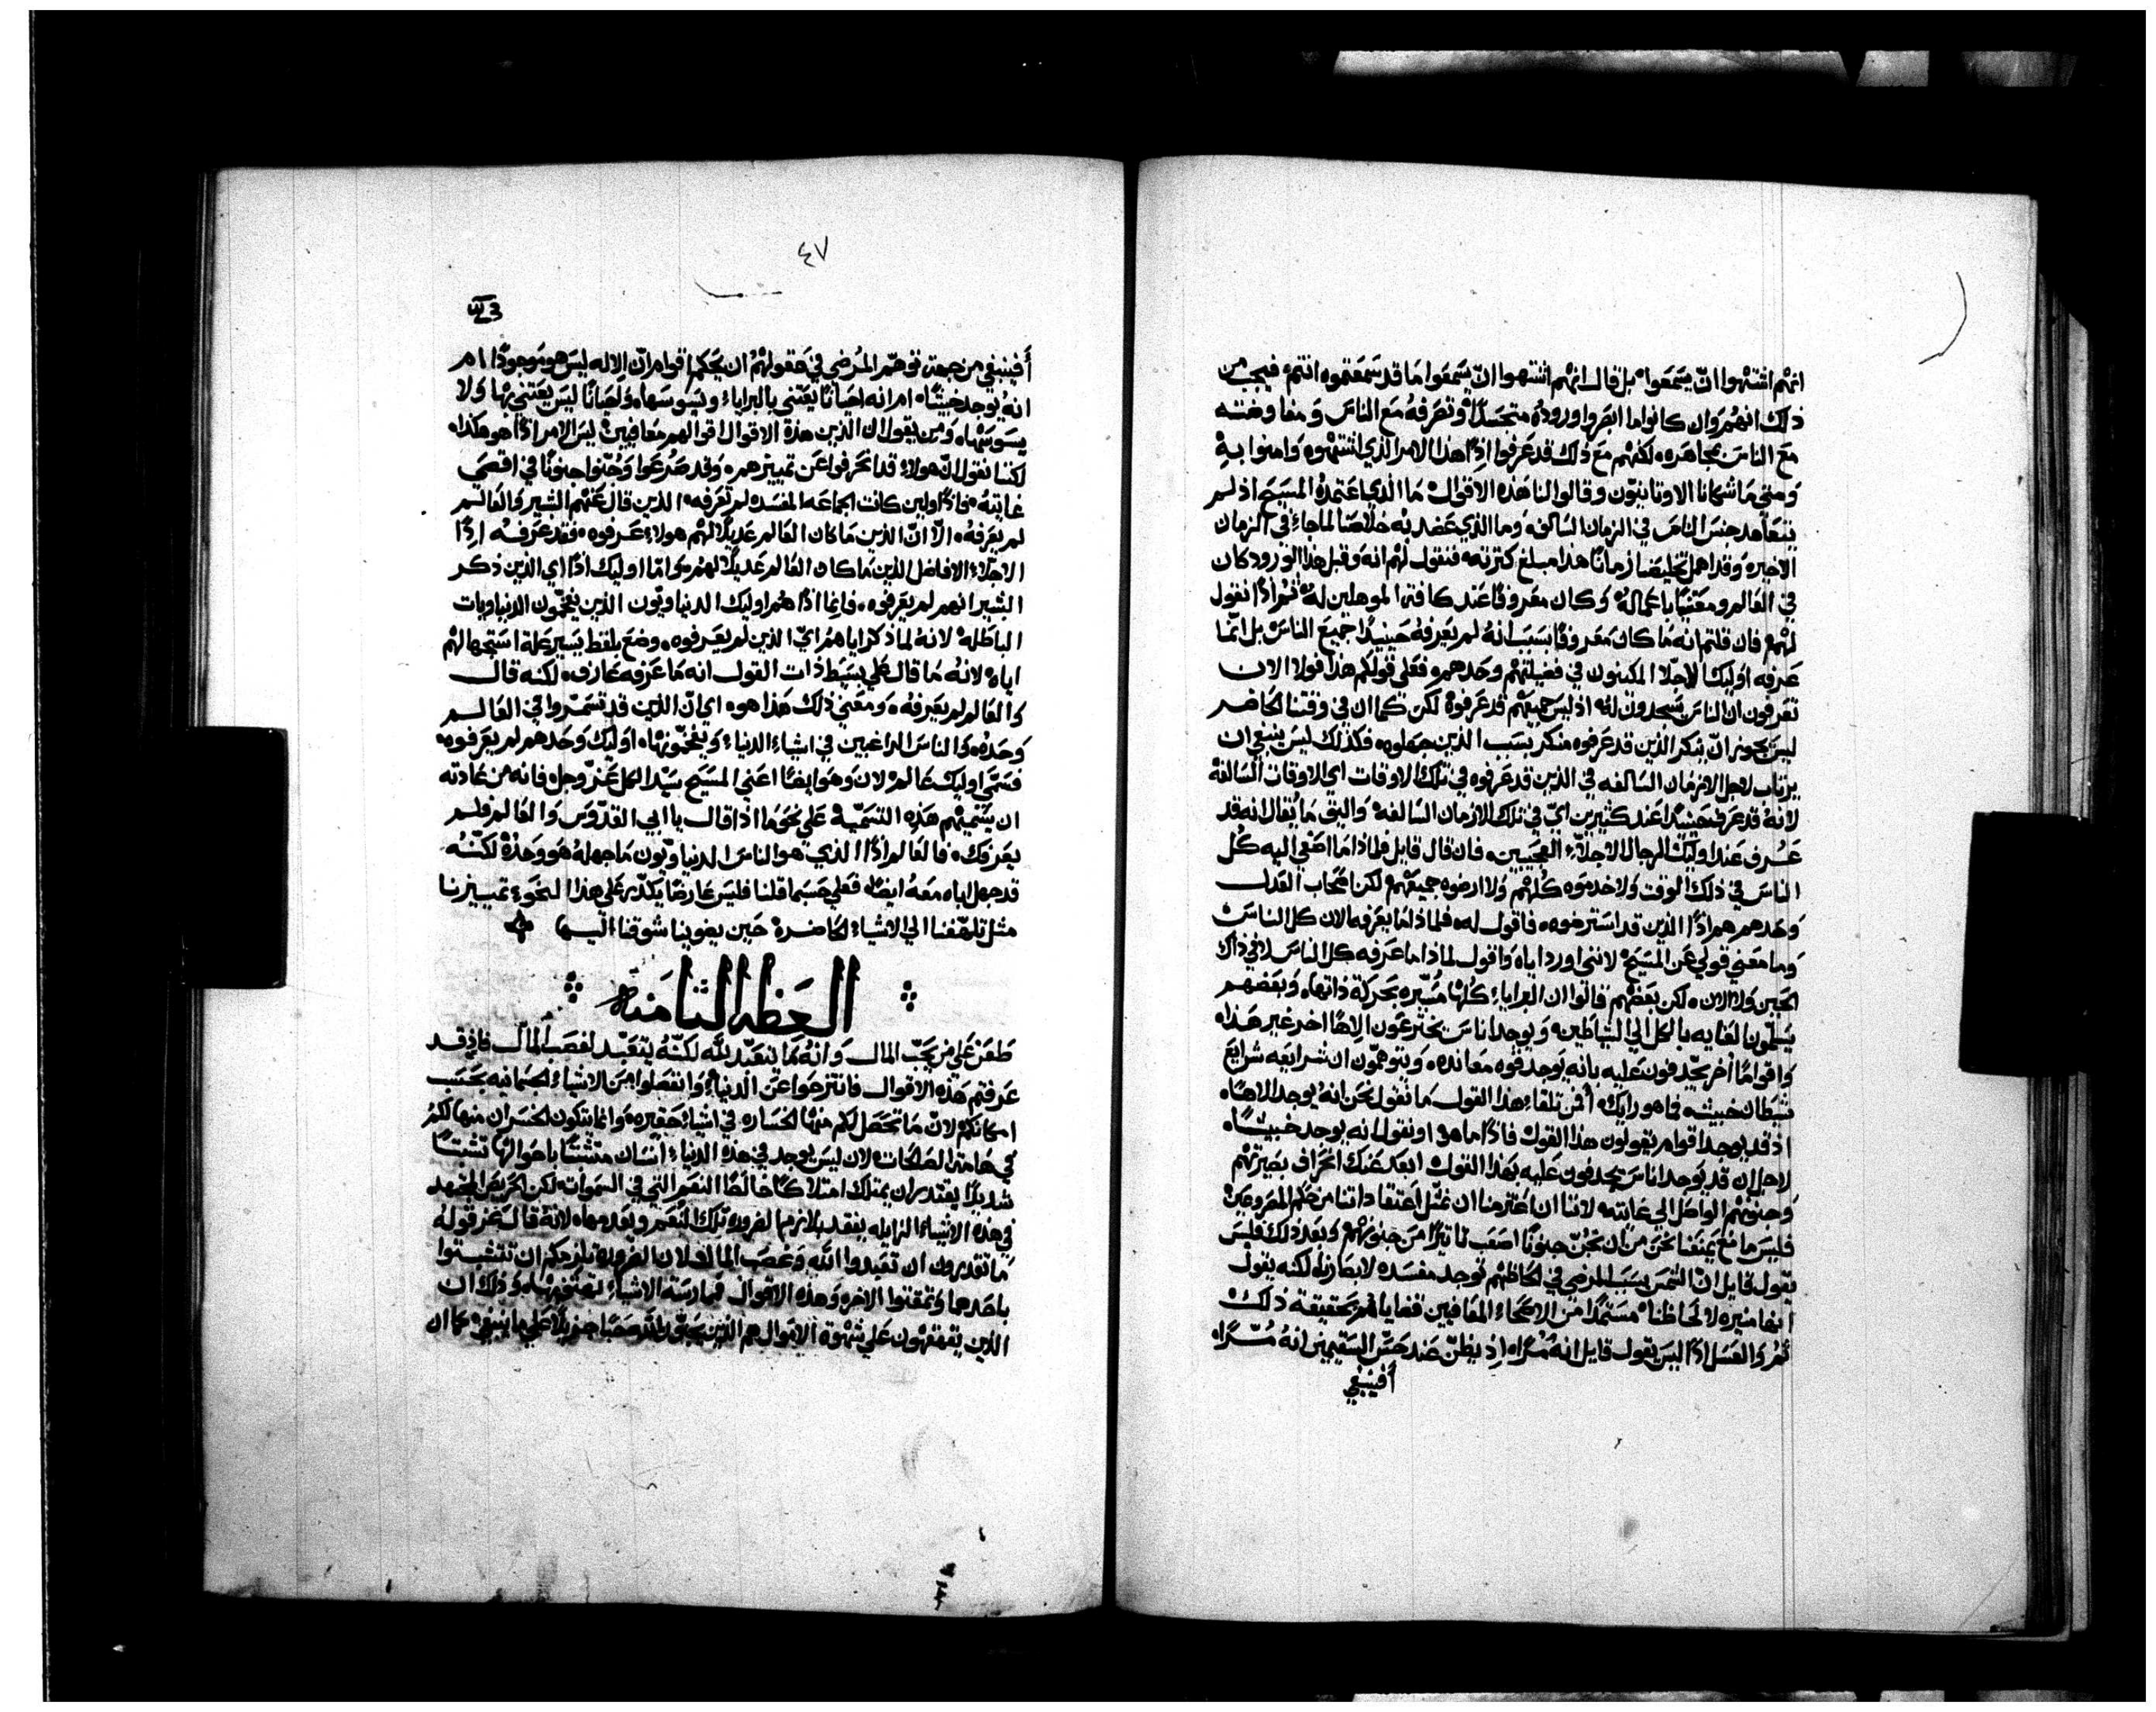 انهم اشتهوا انّ يسمعوا بل قال انهم اشتهوا انّ يسمعوا ما قد سمعتموه انتم فيجب من
ذلك انهم وان كانوا ما ابصروا وروده متجسدًا وتصرفه مع الناس ومفاوضته
مع الناس مجاهره لكنهم مع ذلك قد عرفوا اذًا هذا الامر الذي اشتهوه وامنوا به
ومتي ما شكانا الاوثانيّون وقالوا لنا هذه الاقوال ما الذي اعتمده المسيح اذ لم
يتعاهد جنس الناس في الزمان السالفه وما الذي قصد به خلاصنا لما جاء في الزمان
الاخيره وقد اهمل تخليصنا زمانًا هذا مبلغ كثرته فنقول لهم انه وقبل هذا الورود كان
في العالم ومعتنيًا باعماله وكان معروفًا عند كافة الموهلين له ثم اذًا نقول
لهم فان قلتم انه ما كان معروفًا بسبب انه لم يعرفه حينيدًا جميع الناس بل انما
عرفه اوليك الاجلا المكينون في فضيلتهم وحدهم فعلي قولكم هذا فولا الان
تعرفون ان الناس يسجدون له اذ ليس جميعهم قد عرفوه لكن كما ان في وقتنا الحاضر
ليس يجوز انّ ينكر الذين قد عرفوه منكر بسبب الذين جهلوه فكذلك ليس ينبغي ان
يرتاب لاجل الازمان السالفه في الذين قد عرفوه في تلك الاوقات اي الاوقات السالفة
لانه قد عرف حينيدًا عند كثيرين ايّ في تلك الازمان السالفة واليق ما يقال انه قد
عُرف عند اوليك الرجال الاجلاء العجيبين فان قال قايل فلماذا ما اصغي اليه كل
الناس في ذلك الوقت ولا خدموه كلهم ولا ارضوه جميعهم لكن اصحاب العدل
وحدهم هم اذًا الذين قد استرضوه فاقول له فلماذا ما يعرفه الان كل الناس
وما معني قولي عن المسيح لانني اورد اباه واقول لماذا ما عرفه كل الناس لا في ذاك
الحين ولا الان لكن بعضهم قالوا ان البرايا كلها مسيّره بحركة ذاتها وبعضهم
يسلمون العنايه بالكل الي الشياطين ويوجد اناس يخترعون الاهًا اخر غير هذا
واقوامًا اخر يجدفون عليه بانه يوجد قوه معانده ويتوهمون ان شرايعه شرايع
شيطان خبيث فما هو رايك أفمن تلقاء هذا القول ما نقول نحن انه يوجد الاهًا
اذ قد يوجد اقوام يقولون هذا القول فاذًا ما هو او نقول انه يوجد خبيثًا
لاجل ان قد يوجد اناس يجدفون عليه بهذا القول ابعد عنك انحراف بصيرتهم
وجنونهم الواصل الي غايته لاننا ان اعتزمنا ان نمثّل اعتقاداتنا من حكم المصروعين
فليس مانع يمنعنا نحن من ان نجنّ جنونًا اصعب تاثيرًا من جنونهم وبعد ذلك فليس
يقول قايل انّ الشمس بسبب المرضي في الحاظهم توجد مفسده للابصار بل لكنه يقول
انها منيره للالحاظنا مستمدًا من الاصحاء المعافيين قضاياهم بحقيقة ذلك
ثم والعسل اذًا ليس يقول قايل انه مرًا اذ يظنّ ضد حسّ السقيمين انه مرًا
أفينبغي
٤٧
أفينبغي من جهة توهّم المرضي في عقولهم ان يحكم اقوام انّ الاله ليس هو موجودًا ام
انه يوجد خبيثًا ام انه احيانًا يعتني بالبرايا ويسوسها واحيانًا ليس يعتني بها ولا
يسوسها ومن يقول ان الذين هذه الاقوال اقوالهم معافيين ليس الامر اذًا هو هكذا
لكننا نقول انّ هولاء قد انحرفوا عن تمييزهم وقد صُرعوا وجُنّوا جنونًا في اقصي
غايته فاذًا ولين كانت الجماعه المفسده لم تعرفه الذين قال عنهم البشير والعالم
لم يعرفه الّا انّ الذين ما كان العالم عديلًا لهم هولاء عرفوه فقد عرفه اذًا
الاجلاء الافاضل الذين ما كان العالم عديلًا لهم واما اوليك اذًا اي الذين ذكر
البشير انهم لم يعرفوه فانما اذًا هم اوليك الدنياويون الذين يتخمّون الدنياويات
الباطله لانه لما ذكر اياهم ايّ الذين لم يعرفوه وضع بلفظ يسير علة استجهالهم
اياه لانه ما قال علي بسيط ذات القول انه ما عرفه عارف لكنه قال
والعالم لم يعرفه ومعني ذلك هذا هو اي انّ الذين قد تسمّروا في العالم
وحده والناس الراغبين في اشياء الدنيا ويتخمّونها اوليك وحدهم لم يعرفوه
فسمّي اوليك عالم لان وهو ايضًا اعني المسيح سيد الكل عزّ وجل فانه من عادته
ان يسميهم هذه التسميه علي نحو ما اذا قال يا ابي القدوس والعالم فلم
يعرفك فالعالم اذًا الذي هو الناس الدنياويون ما جهله هو وحده لكنه
قد جهل اباه معه ايضًا فعلي حسبما قلنا فليس عارضًا يكدّر علي هذا النحو تمييزنا
مثل تلهّفنا الي الاشياء الحاضرة حين يغوينا شوقنا اليها
العظه الثامنه
طعن علي من يحبّ المال وانه ما يتعبّد لله لكنّه يتعبّد لغصب المال فاذ قد
عرفتم هذه الاقوال فانتزحوا عن الدنيا وانفصلوا من الاشياء الجسمانيه بحسب
امكانكم لانّ ما تحصل لكم منها الخساره في اشياء حقيره وانما يتكون الخسران منها لكم
في هامة الصالحات لان ليس يوجد في هذه الدنيا انسان متشبثًا باحوالها تشبثًا
شديدًا يقتدر ان يمتلك امتلاكًا خالصًا النعم التي في السموات لكن الحريص المجتهد
في هذه الاشياء الزايله يفقد بلازم الضروره تلك النعم ويعدمها لانه قال عز قوله
ما تقدرون ان تعبدوا الله وغصب المال لان الضرورة تلزمكم ان تتشبثوا
باحدهما وتمقتوا الاخر وهذه الاقوال فممارسة الاشياء تهتف بها وذلك ان
الذين يقهقهون علي شهوة الاموال هم الذين يحبّون الله حبًا جزيلًا علي ما ينبغي كما ان